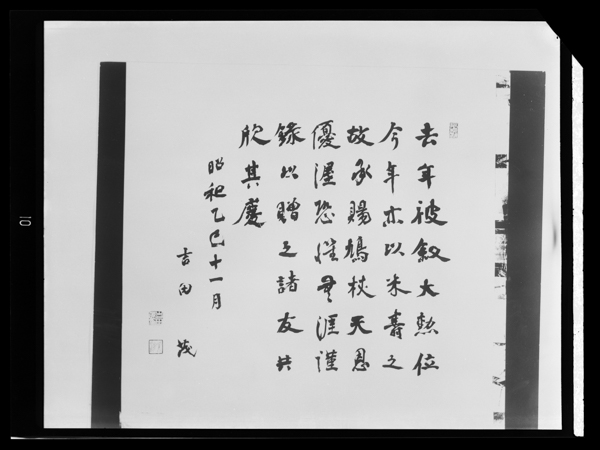 去年被叙大勲位
今年亦以米壽之
故承賜鳩杖天恩
優渥恐懼無涯謹
錄以贈之諸友共
欣其慶
昭和乙巳十一月
吉田茂
10